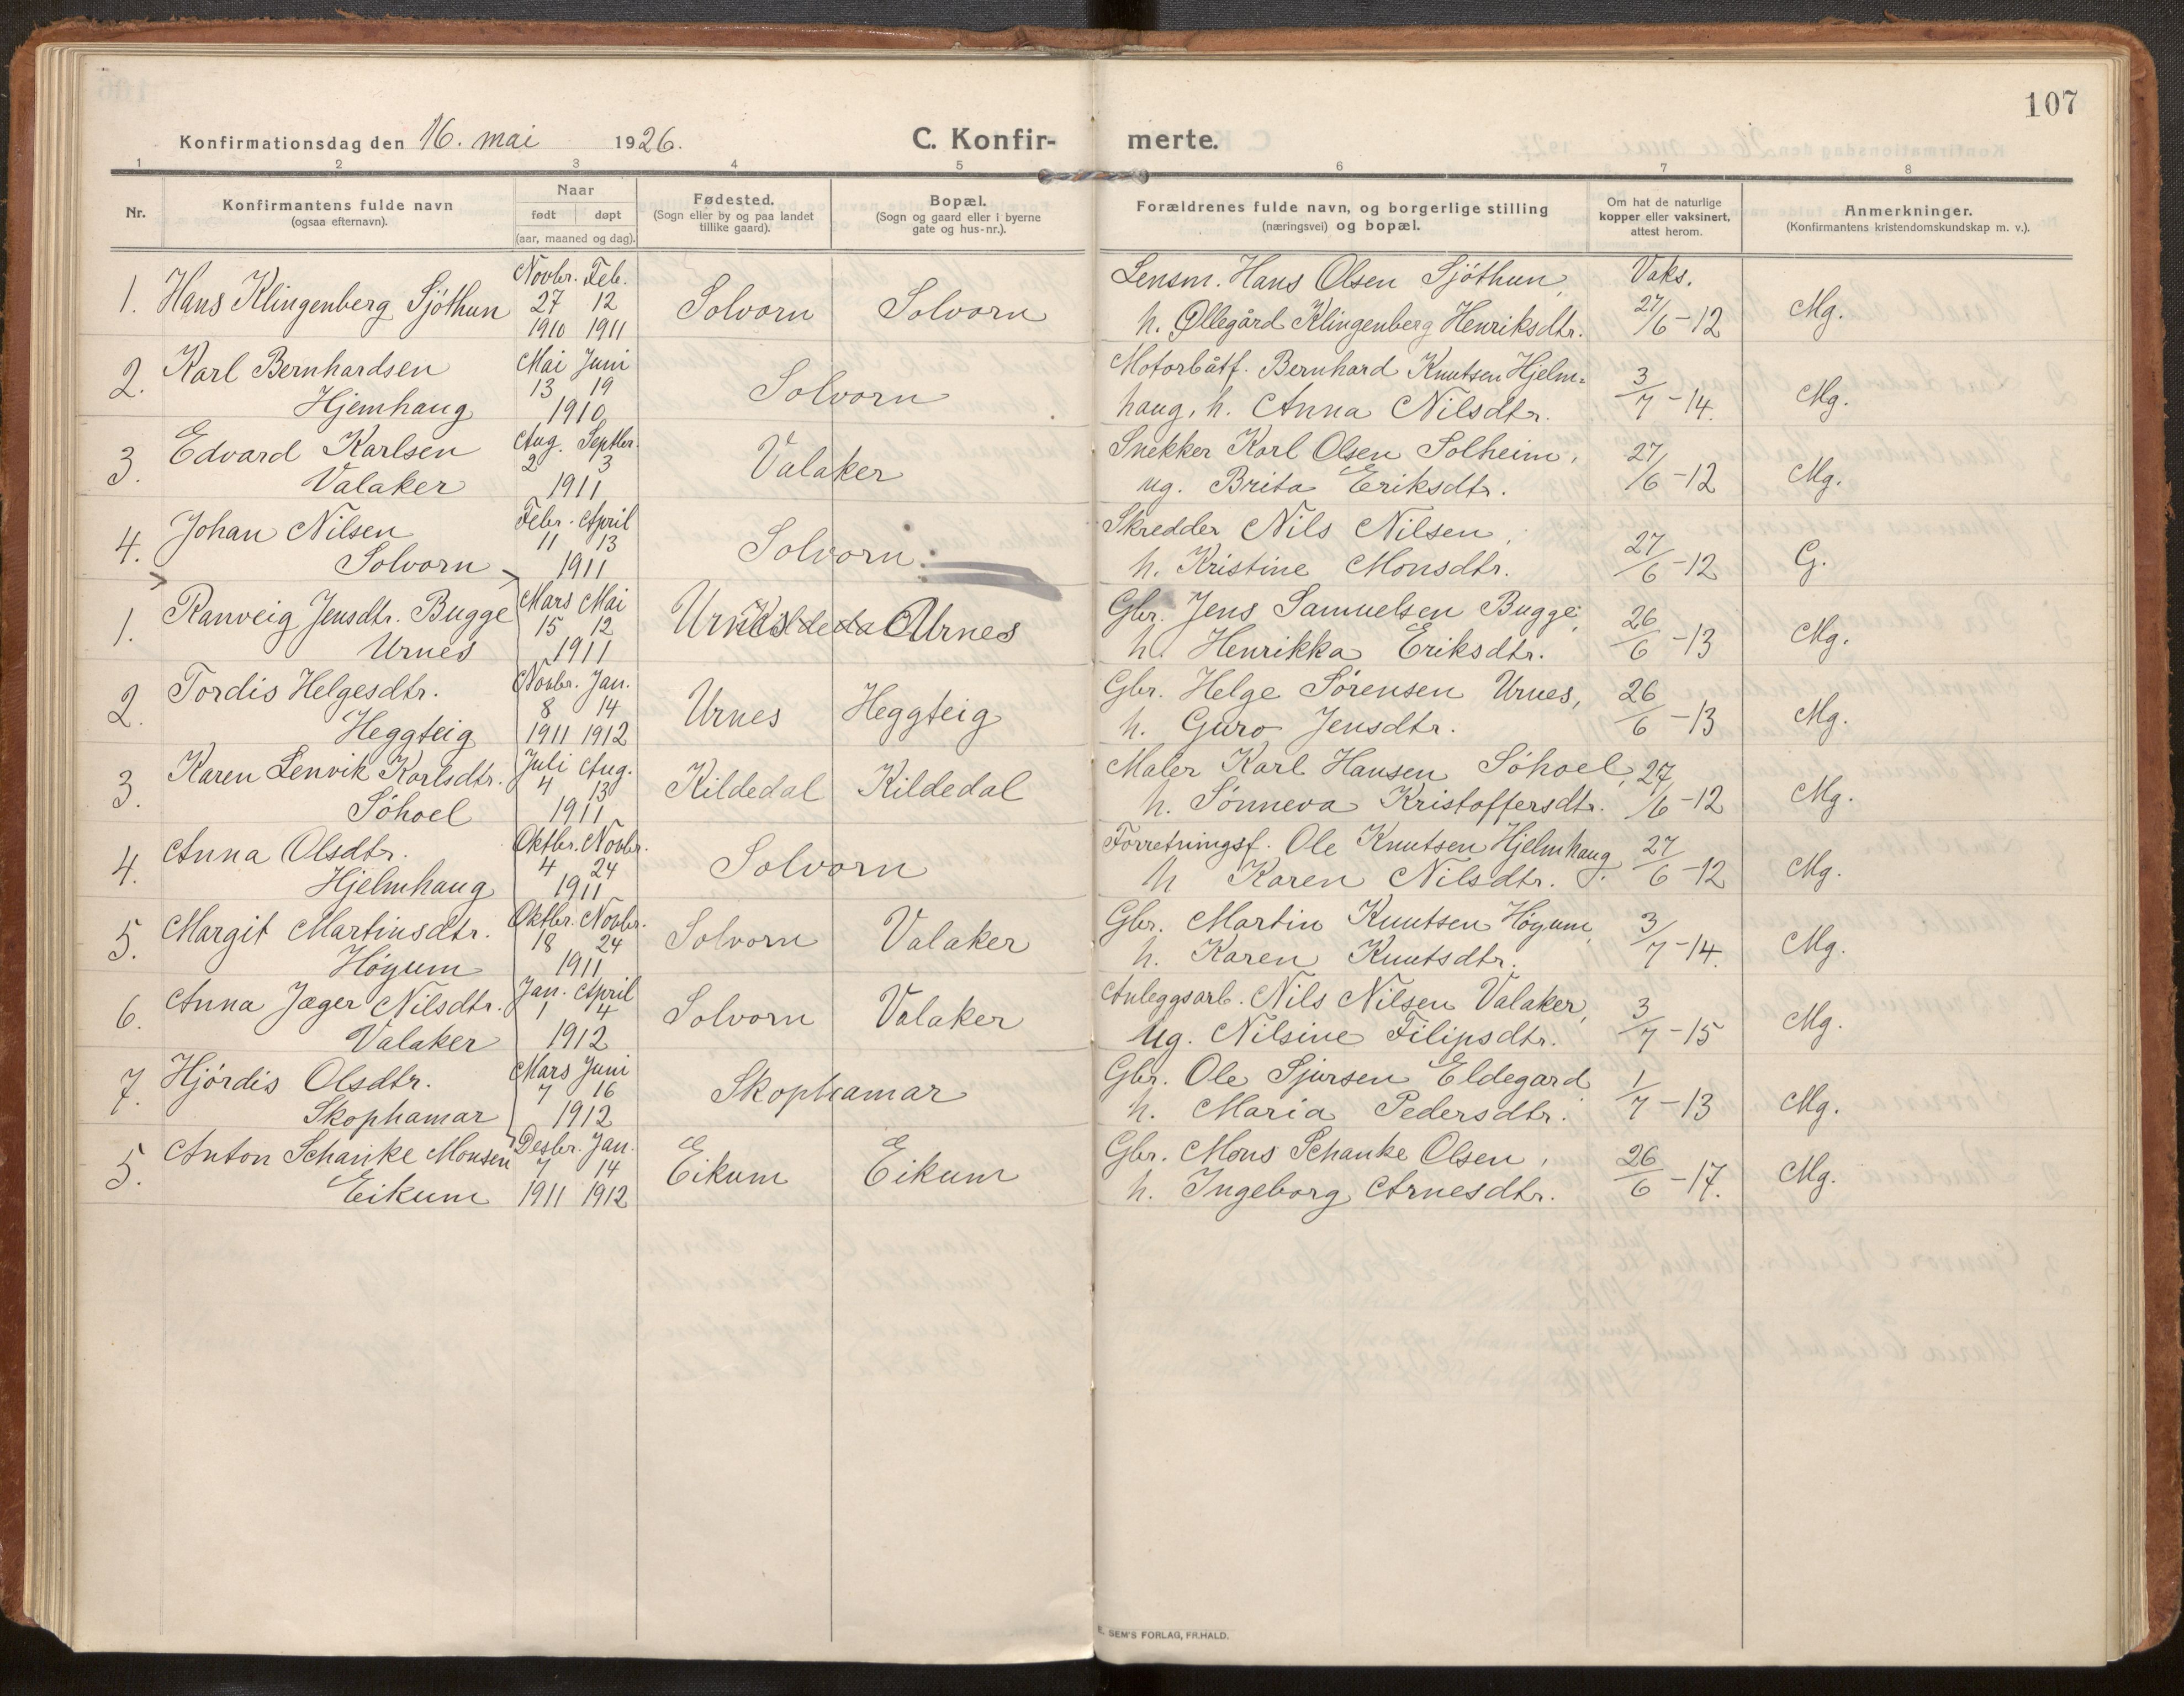 107
Konfirmationsdag den 16. mai 1926. C. Konfir- merte.
1 2 3 4 5 6 7 8
Nr.
Konfirmantens fulde navn
(ogsaa efternavn).
Naar
født døpt
(aar, maaned og dag).
Fødested.
(Sogn eller by og paa landet
tillike gaard).
Bopæl.
(Sogn og gaard eller i byerne
gate og hus-nr.).
Forældrenes fulde navn, og borgerlige stilling
(næringsvei) og bopæl.
Om hat de naturlige
kopper eller vaksinert,
attest herom.
Anmerkninger.
(Konfirmantens kristendomskundskap m. v.).
Novbr. Feb. Lensm. Hans Olsen Sjöthun, Vaks.
1. Hans Klingenberg Sjöthun 27 12 Solvorn Solvorn 27/6-12 Mg.
1910 1911 h. Øllegård Klingenberg Henriksdtr.
2. Karl Bernhardsen Mai Juni Motorbåtf. Bernhard Knutsen Hjelm=
13 19 Solvorn 3/7-14. Mg.
Hjemhaug 1910 haug, h. Anna Nilsdtr.
3. Edvard Karlsen Aug. Septbr. Snekker Karl Olsen Solheim,
2 3 Valaker 27/6-12 Mg.
Valaker 1911 ug. Brita Eriksdtr.
4. Johan Nilsen Febr. April Skredder Nils Nilsen,
11 13 Solvorn 27/6-12 G.
Solvorn 1911 h. Kristine Monsdtr.
1. Ranveig Jensdtr. Bugge Mars Mai Gbr. Jens Samuelsen Bugge,
15 12 Urnes Urnes 26/6-13 Mg.
Urnes 1911 h. Henrikka Eriksdtr.
2. Tordis Helgesdtr. Novbr. Jan. Gbr. Helge Sørensen Urnes,
8 14 Urnes Heggteig 26/6-13 Mg.
Heggteig 1911 1912 h. Guro Jensdtr.
3. Karen Lenvik Karlsdtr. Juli Aug. Maler Karl Hansen Söhoel,
4 13 Kildedal Kildedal 27/6-12 Mg.
Söhoel 1911 h. Sönneva Kristoffersdtr.
4. Anna Olsdtr. Oktbr. Novbr. Forretningsf. Ole Knutsen Hjelmhaug
4 24 Solvorn 27/6-12 Mg.
Hjelmhaug 1911 h Karen Nilsdtr.
5. Margit Martinsdtr. Oktbr. Novbr. Gbr. Martin Knutsen Høgum,
18 24 Solvorn Valaker 3/7-14. Mg.
Høgum 1911 h. Karen Knutsdtr.
6. Anna Jæger Nilsdtr. Jan. April Anleggsarb. Nils Nilsen Valaker,
1 4 Solvorn Valaker 3/7-15 Mg.
Valaker 1912 ug. Nilsine Filipsdtr.
7. Hjördis Olsdtr. Mars Juni Gbr. Ole Sjursen Eldegard
7 16 Skophamar 1/7-13 Mg.
Skophamar 1912 h. Maria Pedersdtr.
5. Anton Schanke Monsen Desbr. Jan. Gbr. Mons Schanke Olsen,
7 14 Eikum Eikum 26/6-17. Mg.
Eikum 1911 1912 h. Ingeborg Arnesdtr.
SEM'S FORLAG, FR.HALD.